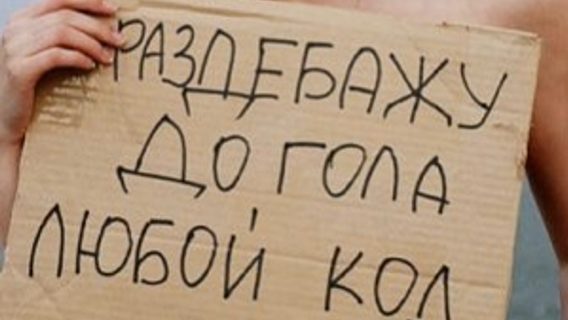 РАЗДЕБАЖУ
ДО ГОЛА
ЛЮБОЙ КОД